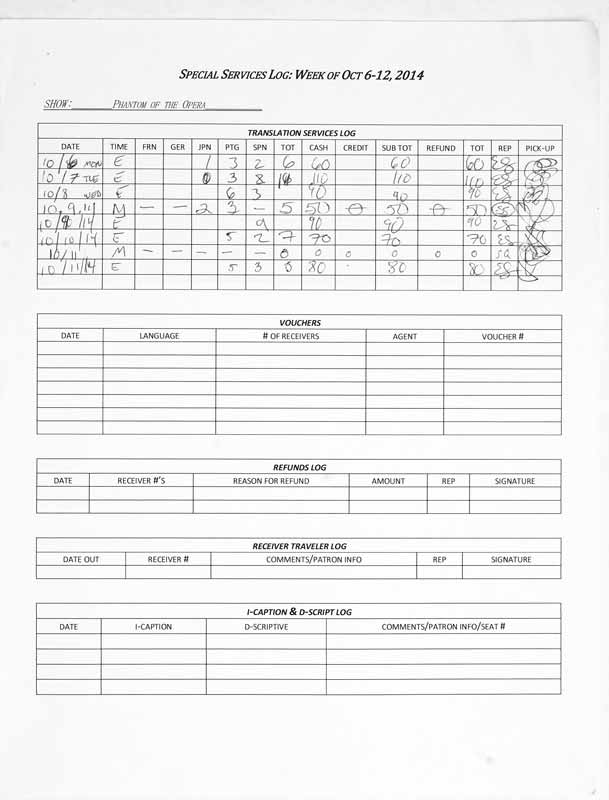 SPECIAL SERVICES LOG: WEEK OF OCT 6-12, 2014
SHOW: PHANTOM OF THE OPERA
TRANSLATION SERVICES LOG
DATE TIME FRN GER JPN PTG SPN TOT CASH CREDIT SUB TOT REFUND TOT REP PICK-UP
10/6 MON E 1 3 2 6 60 60 60 ES
10/7 TUE E 0 3 8 11 110 110 110 ES
10/8 WED E 6 3 90 90 90 ES
10,9,14 M — — 2 3 — 5 50 0 50 0 50 ES
10/9/14 E 9 90 90 90 ES
10/10/14 E 5 2 7 70 70 70 ES
10/11 M — — — — — 0 0 0 0 0 0 SQ
10/11/14 E 5 3 80 80 80 ES
VOUCHERS
DATE LANGUAGE # OF RECEIVERS AGENT VOUCHER #
REFUNDS LOG
DATE RECEIVER #'S REASON FOR REFUND AMOUNT REP SIGNATURE
RECEIVER TRAVELER LOG
DATE OUT RECEIVER # COMMENTS/PATRON INFO REP SIGNATURE
I-CAPTION & D-SCRIPT LOG
DATE I-CAPTION D-SCRIPTIVE COMMENTS/PATRON INFO/SEAT #